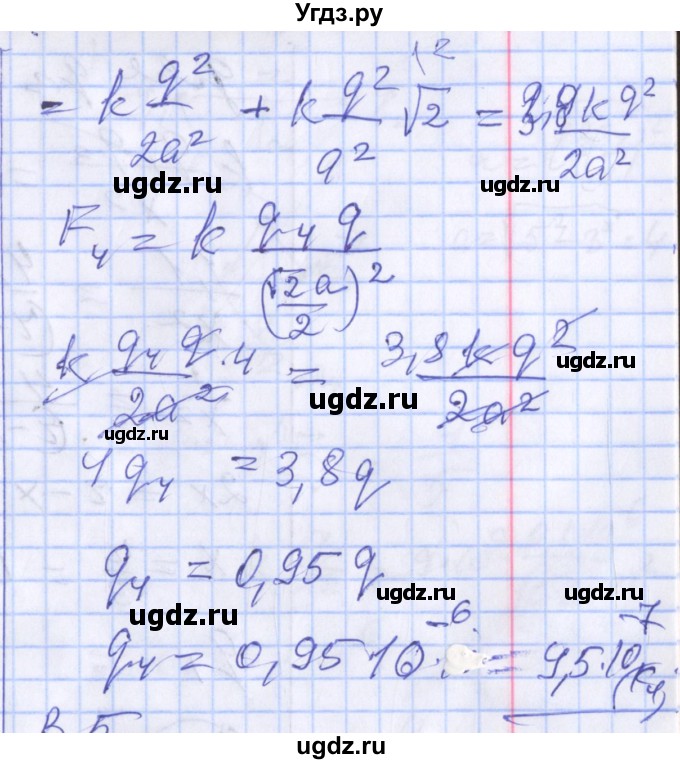 Угдз.ру
= k q²/2a² + k q²/a² √2 = 3,8kq²/2a²
ugdz.ru ugdz.ru
F₄ = k q₄q/(√2a/2)²
k q₄q·4/2a² = 3,8kq²/2a²
ugdz.ru
ugdz.ru
ugdz.ru
4q₄ = 3,8q
ugdz.ru
q₄ = 0,95q
ugdz.ru
ugdz.ru
ugdz.ru
q₄ = 0,95·10⁻⁶ = 9,5·10⁻⁷ (Кл)
В 5
ugdz.ru